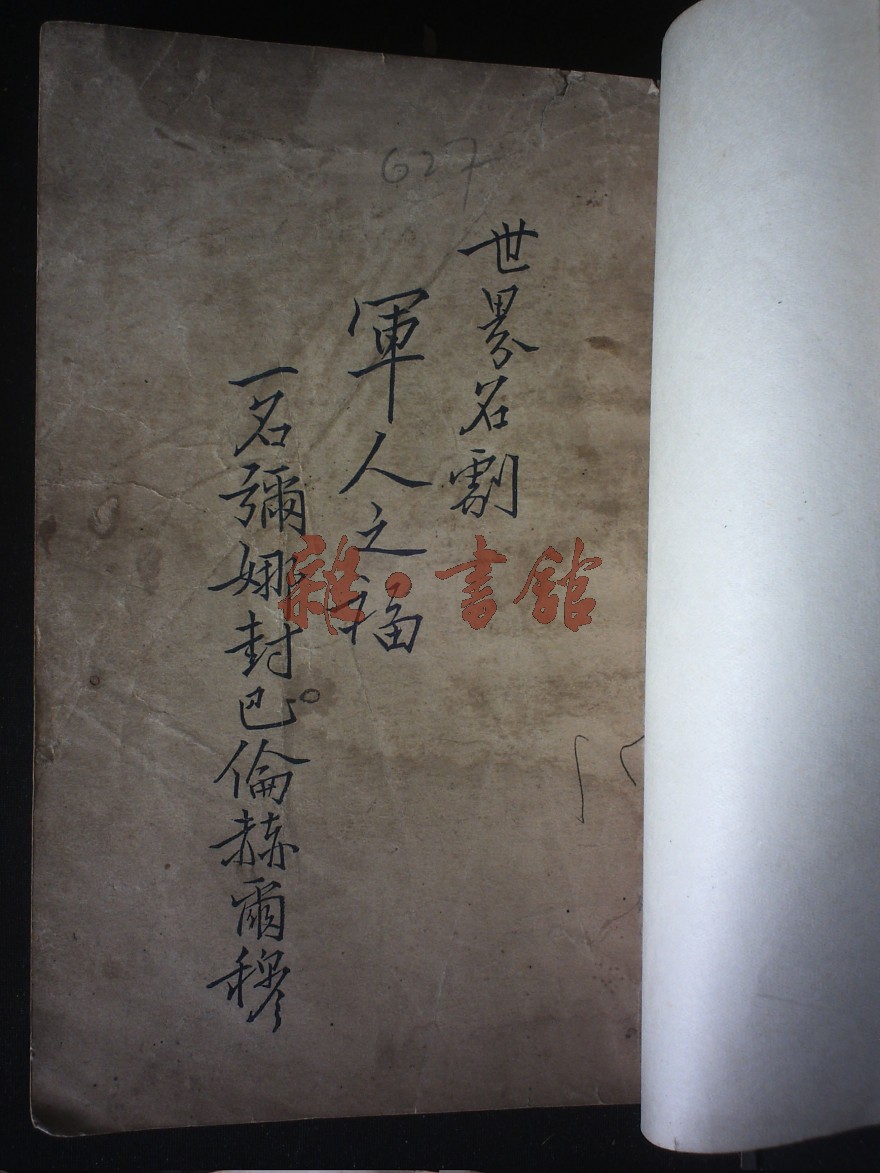 627
世界名劇
軍人之福
一名彌娜封巴倫赫爾穆
雜·書館